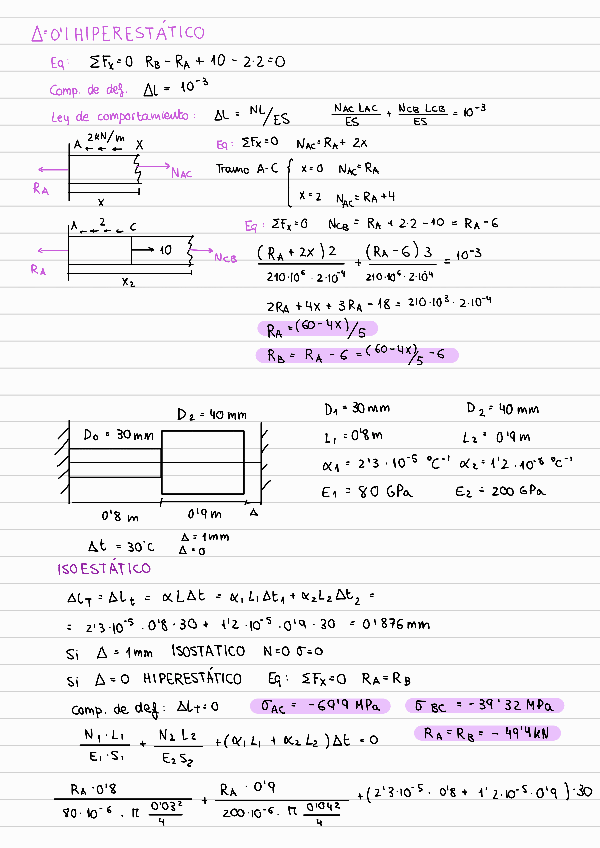 Δ=0'1 HIPERESTÁTICO
Eq: ΣFx=0 RB - RA + 10 - 2·2=0
Comp. de def. ΔL = 10⁻³
Ley de comportamiento: ΔL = NL/ES NAC LAC/ES + NCB LCB/ES = 10⁻³
2kN/m
A X
NAC
RA
x
Eq: ΣFx=0 NAC=RA+ 2x
Tramo A-C { x=0 NAC=RA
x=2 NAC=RA+4
A 2 C
10
NCB
RA
x2
Eq: ΣFx=0 NCB = RA + 2·2 -10 = RA - 6
(RA + 2x)2/210·10⁶·2·10⁻⁴ + (RA - 6)3/210·10⁶·2·10⁴ = 10⁻³
2RA + 4x + 3RA - 18 = 210·10³·2·10⁻⁴
RA = (60-4x)/5
RB = RA - 6 = (60-4x)/5 - 6
D2 = 40 mm
D0 = 30 mm
0'8 m 0'9 m Δ
Δt = 30°C Δ = 1mm
Δ = 0
D1 = 30 mm D2 = 40 mm
L1 = 0'8 m L2 = 0'9 m
α1 = 2'3·10⁻⁵ °C⁻¹ α2 = 1'2·10⁻⁵ °C⁻¹
E1 = 80 GPa E2 = 200 GPa
ISOESTÁTICO
ΔLT = ΔLt = αLΔt = α1L1Δt1 + α2L2Δt2 =
= 2'3·10⁻⁵·0'8·30 + 1'2·10⁻⁵·0'9·30 = 0'876 mm
Si Δ = 1mm ISOSTATICO N=0 σ=0
Si Δ = 0 HIPERESTÁTICO Eq: ΣFx=0 RA=RB
Comp. de def: ΔLT=0 σAC = -69'9 MPa σBC = -39'32 MPa
N1·L1/E1·S1 + N2 L2/E2S2 + (α1L1 + α2L2)Δt = 0 RA=RB = - 49'4kN
RA·0'8/80·10⁻⁶·π 0'03²/4 + RA·0'9/200·10⁻⁶·π 0'04²/4 + (2'3·10⁻⁵·0'8 + 1'2·10⁻⁵·0'9)·30